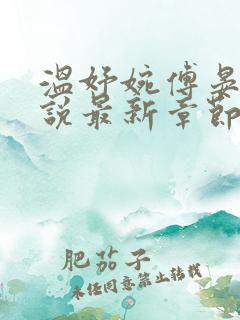 温妤婉傅晏
说最新章节
肥茄子
未经同意禁止转载